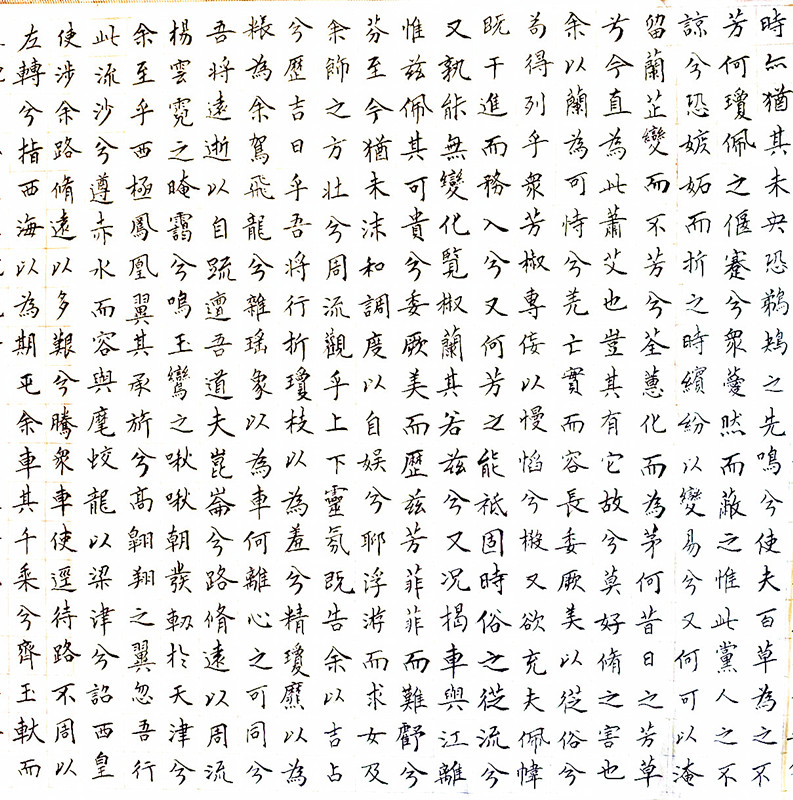 時亦猶其未央恐鵜鴂之先鳴兮使夫百草為之不
芳何瓊佩之偃蹇兮衆薆然而蔽之惟此黨人之不
諒兮恐嫉妬而折之時繽紛以變易兮又何可以淹
留蘭芷變而不芳兮荃蕙化而為茅何昔日之芳草
兮今直為此蕭艾也豈其有它故兮莫好脩之害也
余以蘭為可恃兮羌亡實而容長委厥美以從俗兮
苟得列乎衆芳椒專佞以慢慆兮樧又欲充夫佩幃
既干進而務入兮又何芳之能祗固時俗之從流兮
又孰能無變化覽椒蘭其若茲兮又況揭車與江離
惟茲佩其可貴兮委厥美而歷茲芳菲菲而難虧兮
芬至今猶未沬和調度以自娛兮聊浮游而求女及
余飾之方壯兮周流觀乎上下靈氛既告余以吉占
兮歷吉日乎吾將行折瓊枝以為羞兮精瓊爢以為
粻為余駕飛龍兮雜瑤象以為車何離心之可同兮
吾將遠逝以自疏邅吾道夫崑崙兮路脩遠以周流
楊雲霓之晻靄兮鳴玉鸞之啾啾朝發軔於天津兮
余至乎西極鳳凰翼其承旂兮高翱翔之翼忽吾行
此流沙兮遵赤水而容與麾蛟龍以梁津兮詔西皇
使涉余路脩遠以多艱兮騰衆車使逕待路不周以
左轉兮指西海以為期屯余車其千乘兮齊玉軑而